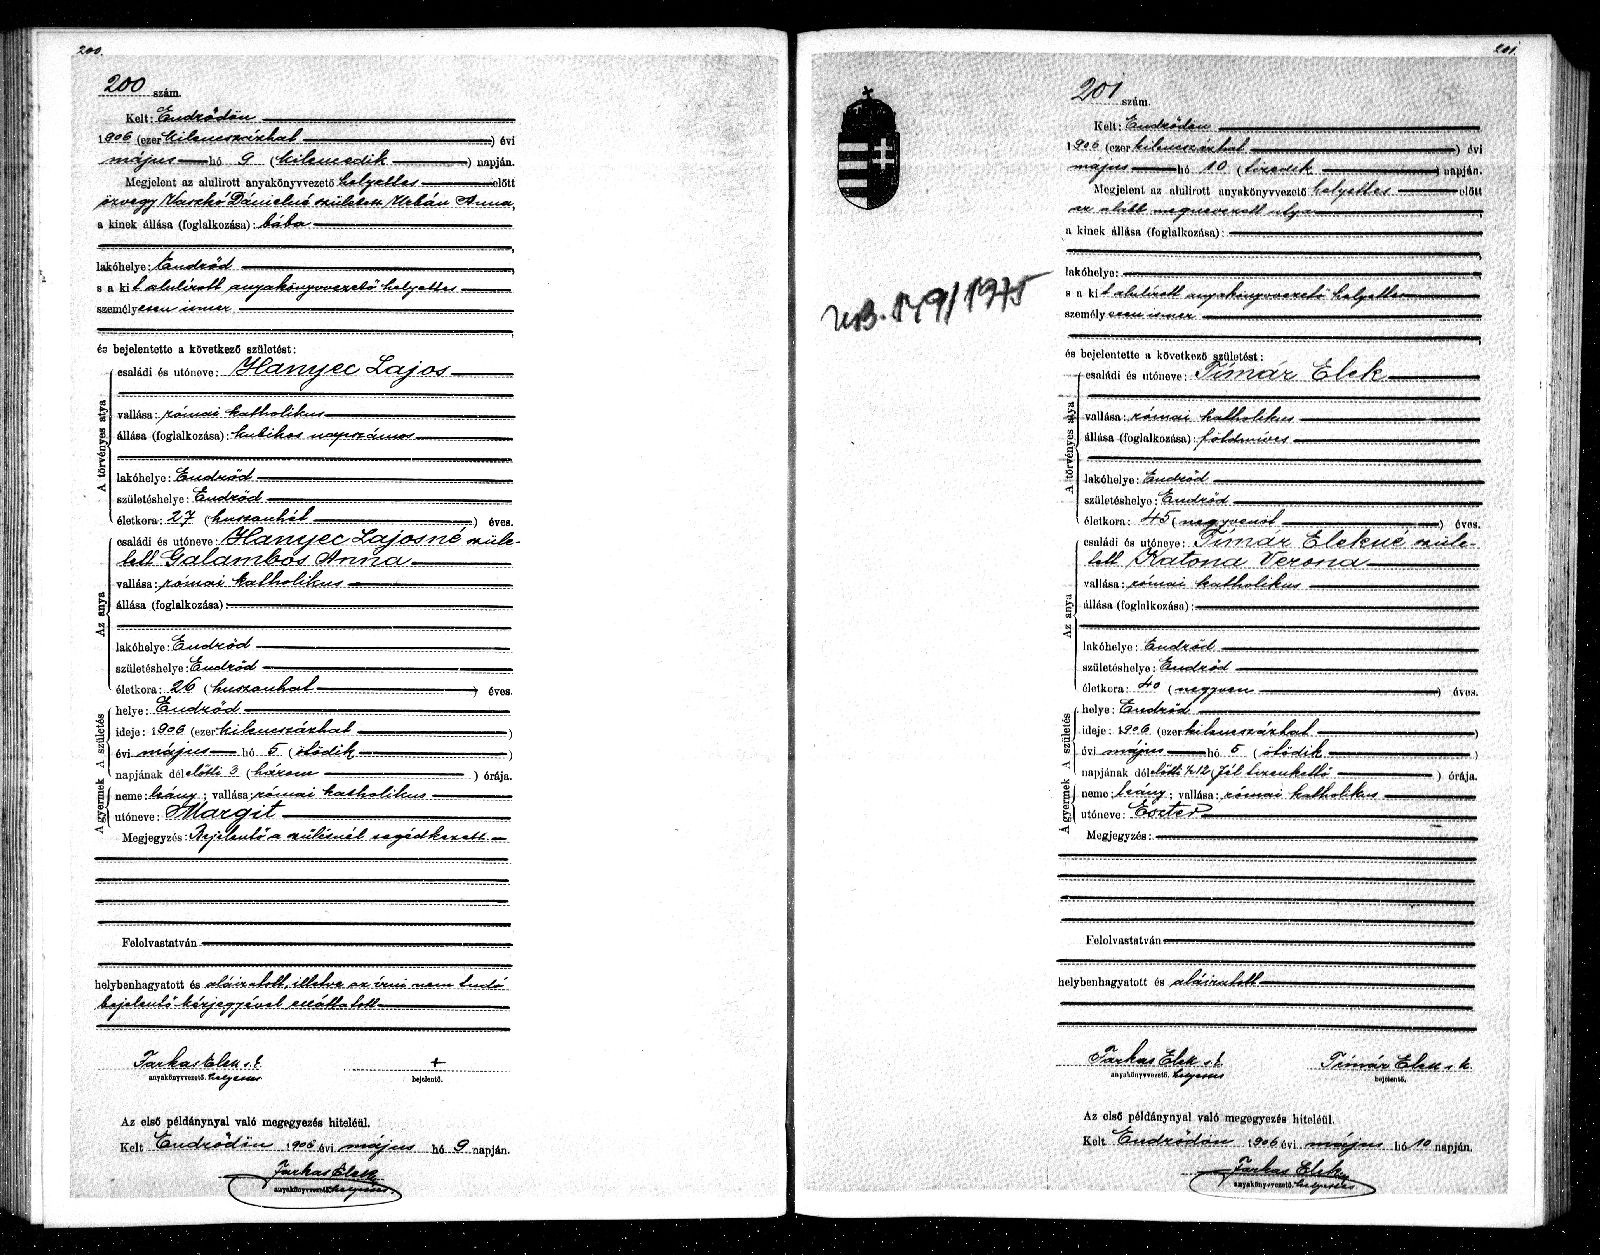 200.
200 szám.
Kelt: Endrődön
1906 (ezer kilencszázhat) évi
május hó 9 (kilencedik) napján.
Megjelent az alulirott anyakönyvvezető helyettes előtt
özvegy Vaszkó Dánielné született Urbán Anna,
a kinek állása (foglalkozása): bába
lakóhelye: Endrőd
s a kit alulírott anyakönyvvezető helyettes
személyesen ismer
és bejelentette a következő születést:
A törvényes atya
családi és utóneve: Hanyec Lajos
vallása: római katholikus
állása (foglalkozása): kubikos napszámos
lakóhelye: Endrőd
születéshelye: Endrőd
életkora: 27 (huszonhét) éves.
Az anya
családi és utóneve: Hanyec Lajosné szüle-
tett Galambos Anna
vallása: római katholikus
állása (foglalkozása):
lakóhelye: Endrőd
születéshelye: Endrőd
életkora: 26 (huszonhat) éves.
A gyermek A születés
helye: Endrőd
ideje: 1906 (ezer kilencszázhat)
évi május hó 5 (ötödik)
napjának délelőtti 3 (három) órája.
neme: leány; vallása: római katholikus
utóneve: Margit
Megjegyzés: Bejelentő a szülésnél segédkezett
Felolvastatván
helybenhagyatott és aláiratott, illetve az írni nem tudó
bejelentő kézjegyével elláttatott
Farkas Elek s. k. +
anyakönyvvezető. helyettes bejelentő.
Az első példánynyal való megegyezés hiteléül.
Kelt Endrődön 1906 évi május hó 9 napján.
Farkas Elek
anyakönyvvezető. helyettes.
201.
201 szám.
Kelt: Endrődön
1906 (ezer kilencszázhat) évi
május hó 10 (tizedik) napján.
Megjelent az alulirott anyakönyvvezető helyettes előtt
az alább megnevezett atya
a kinek állása (foglalkozása):
lakóhelye:
s a kit alulírott anyakönyvvezető helyettes
személyesen ismer
és bejelentette a következő születést:
A törvényes atya
családi és utóneve: Tímár Elek
vallása: római katholikus
állása (foglalkozása): földmíves
lakóhelye: Endrőd
születéshelye: Endrőd
életkora: 45 (negyvenöt) éves.
Az anya
családi és utóneve: Tímár Elekné szüle-
tett Katona Verona
vallása: római katholikus
állása (foglalkozása):
lakóhelye: Endrőd
születéshelye: Endrőd
életkora: 40 (negyven) éves.
A gyermek A születés
helye: Endrőd
ideje: 1906 (ezer kilencszázhat)
évi május hó 5 (ötödik)
napjának délelőtti ½12 (fél tizenkettő) órája.
neme: leány; vallása: római katholikus
utóneve: Eszter
Megjegyzés:
Felolvastatván
helybenhagyatott és aláiratott
Farkas Elek s. k. Tímár Elek s. k.
anyakönyvvezető. helyettes bejelentő.
Az első példánynyal való megegyezés hiteléül.
Kelt Endrődön 1906 évi május hó 10 napján.
Farkas Elek
anyakönyvvezető. helyettes